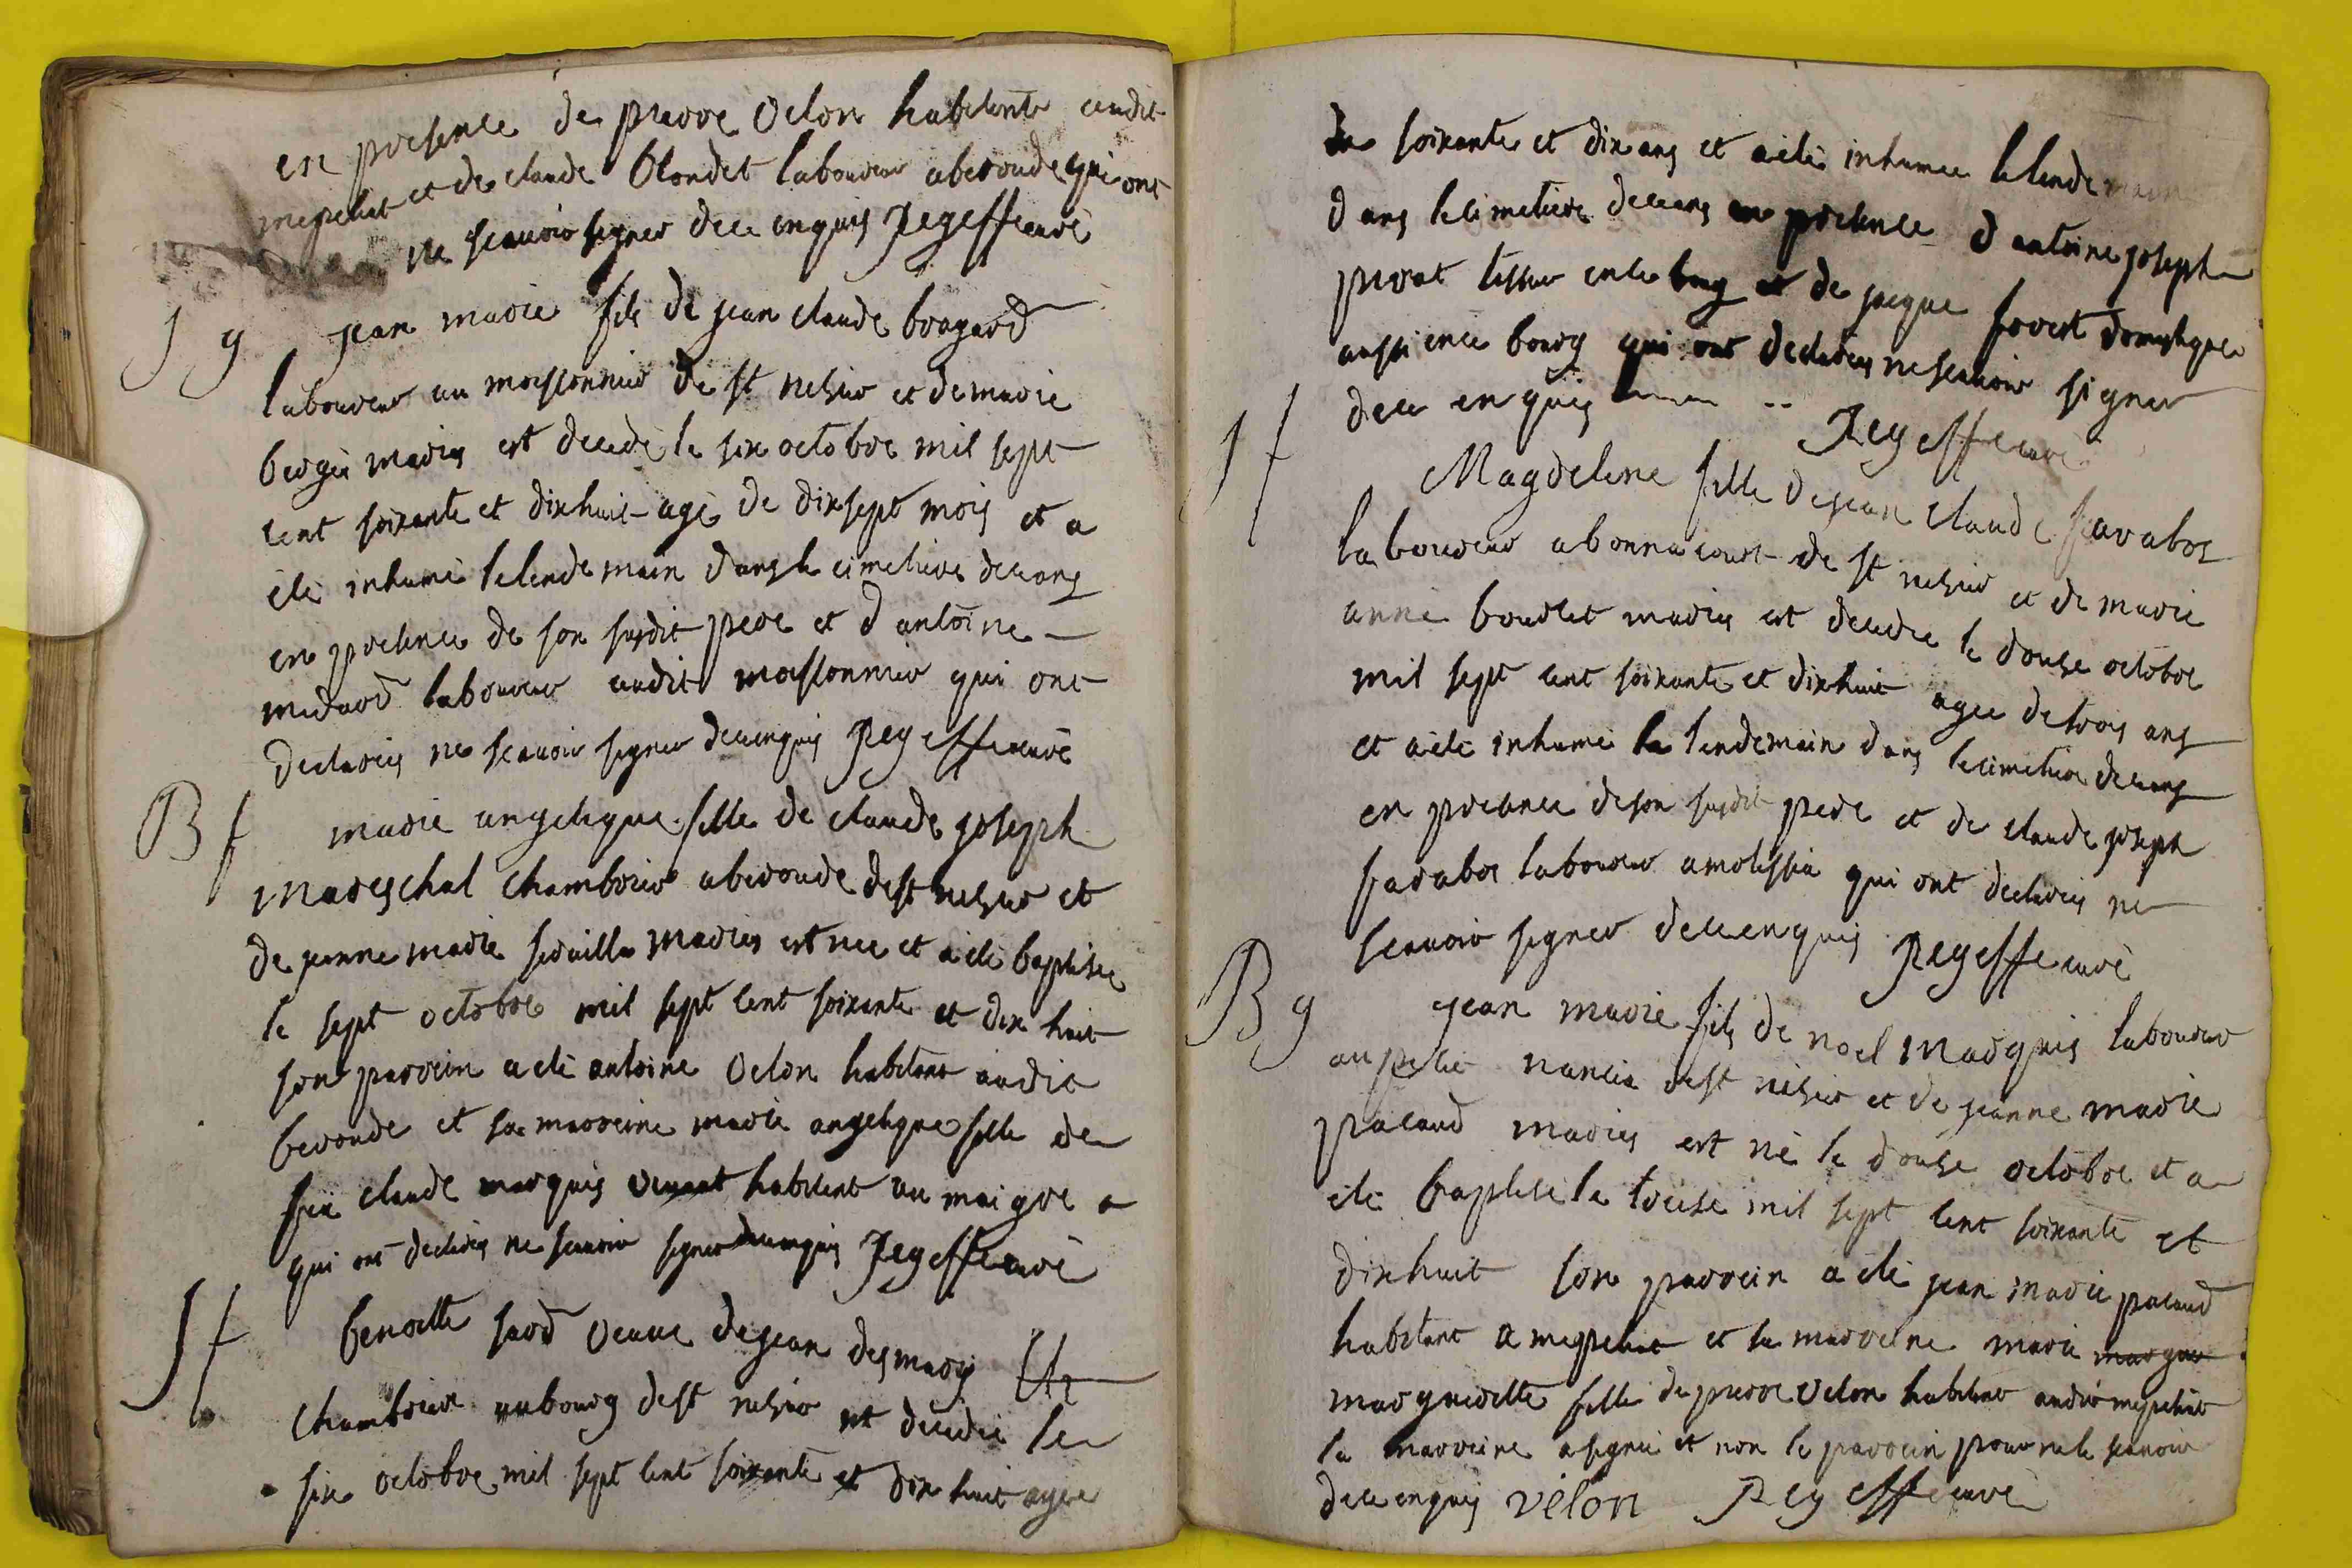 en presence de pierre velon habitante audit
mepeliat et de claude blondet laboureur aberoude qui ont
ne scauoir signer de ce enquis Rey effe curé
S g jean marie fils de jean claude bragard
laboureur au moissonnier de st nesier et de marie
bergié mariés est decedé le six octobre mil sept
cent soixante et dix huit agé de dix sept mois et a
été inhumé le lendemain dans le cimetiere de ceans
en presence de son susdit pere et d antoine
midard laboureur audit moissonnier qui ont
declarés ne scauoir signer de ce enquis Rey effe curé
B f marie angelique fille de claude joseph
mareschal chambrier aberoude de st nesier et
de jeanne marie servilla mariés est nee et a été baptisee
le sept octobre mil sept cent soixante et dix huit
son parrein a été antoine velon habitant audit
beroude et sa marreine marie angelique fille de
feu claude marquis vivant habitant au maigre a
qui ont declarés ne scauoir signer de ce enquis Rey effe curé
S f benoitte sard veuue de jean desmaris
chambriere au bourg de st nesier est decedée le
six octobre mil sept cent soixante et dix huit agee
de soixante et dix ans et a été inhumee le lendemain
dans le cimetiere de ceans en presence d antoine joseph
privat tessier en ce bourg et de jacque forest domestique
aussi en ce bourg qui ont declarés ne scauoir signer
de ce enquis Rey effe curé
S f Magdelene fille de jean claude favabre
laboureur abonnacourt de st nesier et de marie
anne boudlet mariés est decedee le douse octobre
mil sept cent soixante et dix huit agee de trois ans
et a été inhumé le lendemain dans le cimetiere de ceans
en presence de son susdit pere et de claude joseph
favabre laboureur amolissia qui ont declarés ne
scauoir signer de ce enquis Rey effe curé
B g jean marie fils de noel marquis laboureur
au petit nancia de st nesier et de jeanne marie
pacaud mariés est né le douse octobre et a
été baptisé le treise mil sept cent soixante et
dix huit son parrein a été jean marie pacaud
habitant a mepeliat et sa marreine marie margue
marguerite fille de pierre velon habitant audit mepeliat
la marreine a signée et non le parrein pour ne le scauoir
de ce enquis vélon Rey effe curé